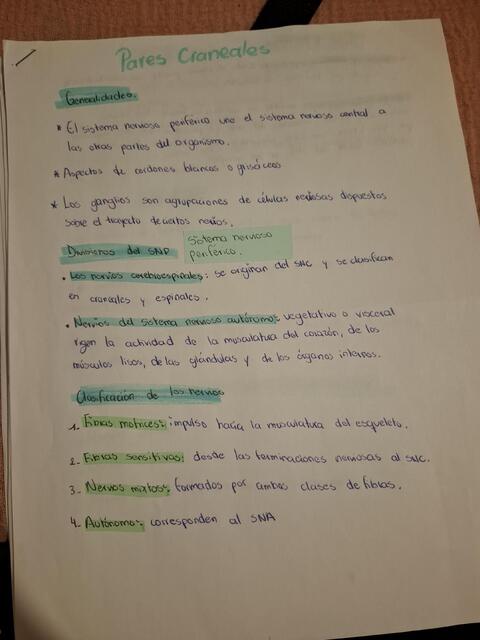 Pares Craneales
Generalidades.
* El sistema nervioso periférico une el sistema nervioso central a
las otras partes del organismo.
* Aspectos de cordones blancos o grisáceos
* Los ganglios son agrupaciones de células nerviosas dispuestos
sobre el trayecto de ciertos nervios.
Divisiones del SNP
Sistema nervioso
periférico.
• Los nervios cerebroespinales: se originan del SNC y se clasifican
en craneales y espinales.
• Nervios del sistema nervioso autónomo: vegetativo o visceral
rigen la actividad de la musculatura del corazón, de los
músculos lisos, de las glándulas y de los órganos internos.
Clasificación de los nervios
1. Fibras motrices: impulso hacia la musculatura del esqueleto.
2. Fibras sensitivas: desde las terminaciones nerviosas al SNC.
3- Nervios mixtos: formados por ambas clases de fibras.
4- Autónomo: corresponden al SNA